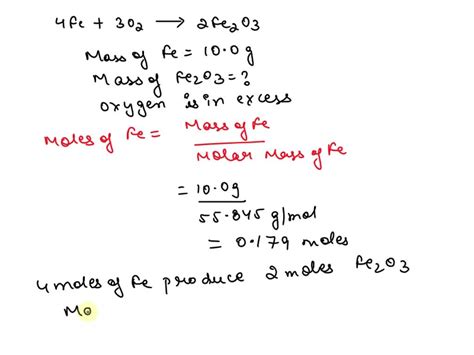 4Fe + 3O2 → 2Fe2O3
Mass of Fe = 10.0g
Mass of Fe2O3 = ?
oxygen is in excess
Moles of Fe = Mass of Fe
Molar Mass of Fe
= 10.0g
55.845 g/mol
= 0.179 moles
4 moles of Fe produce 2 moles Fe2O3
Mo